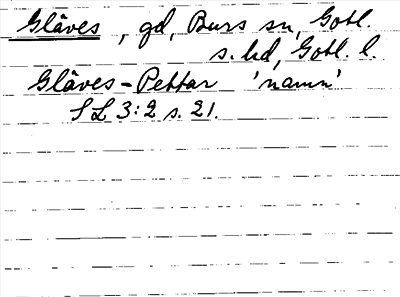 Glåves, gd, Burs sn, Gotl.
s. hd, Gotl. l.
Glåves-Pettar 'namn'
SL 3:2 s. 21.